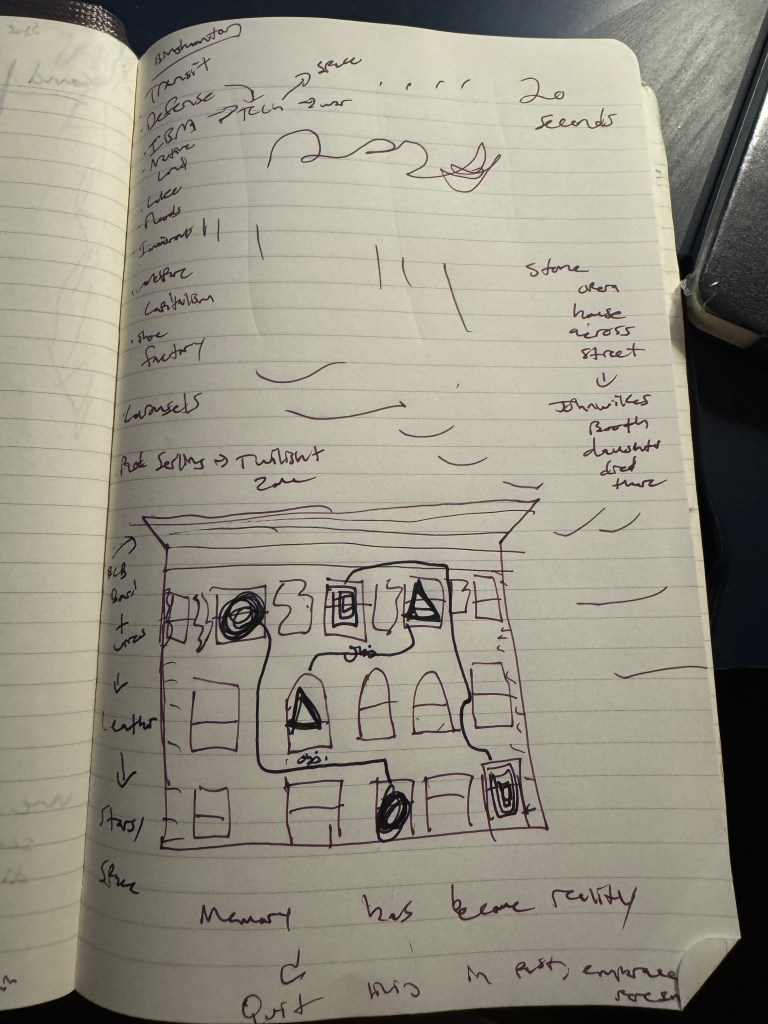 Binghamton
Transit
· Defense → Tech → war
Space
· IBM
· Native
Land
· Lake
· Floods
· Immigrants
· welfare
Capitalism
· shoe
factory
Carousels
Rod Serling → Twilight
Zone
20
seconds
Stone
opera
house
across
street
↓
John Wilkes
Booth
daughter
died
there
PCB
Board
+
wires
↓
Leather
↓
Stars/
Space
Memory has become reality
↓
Quit living in past, embrace